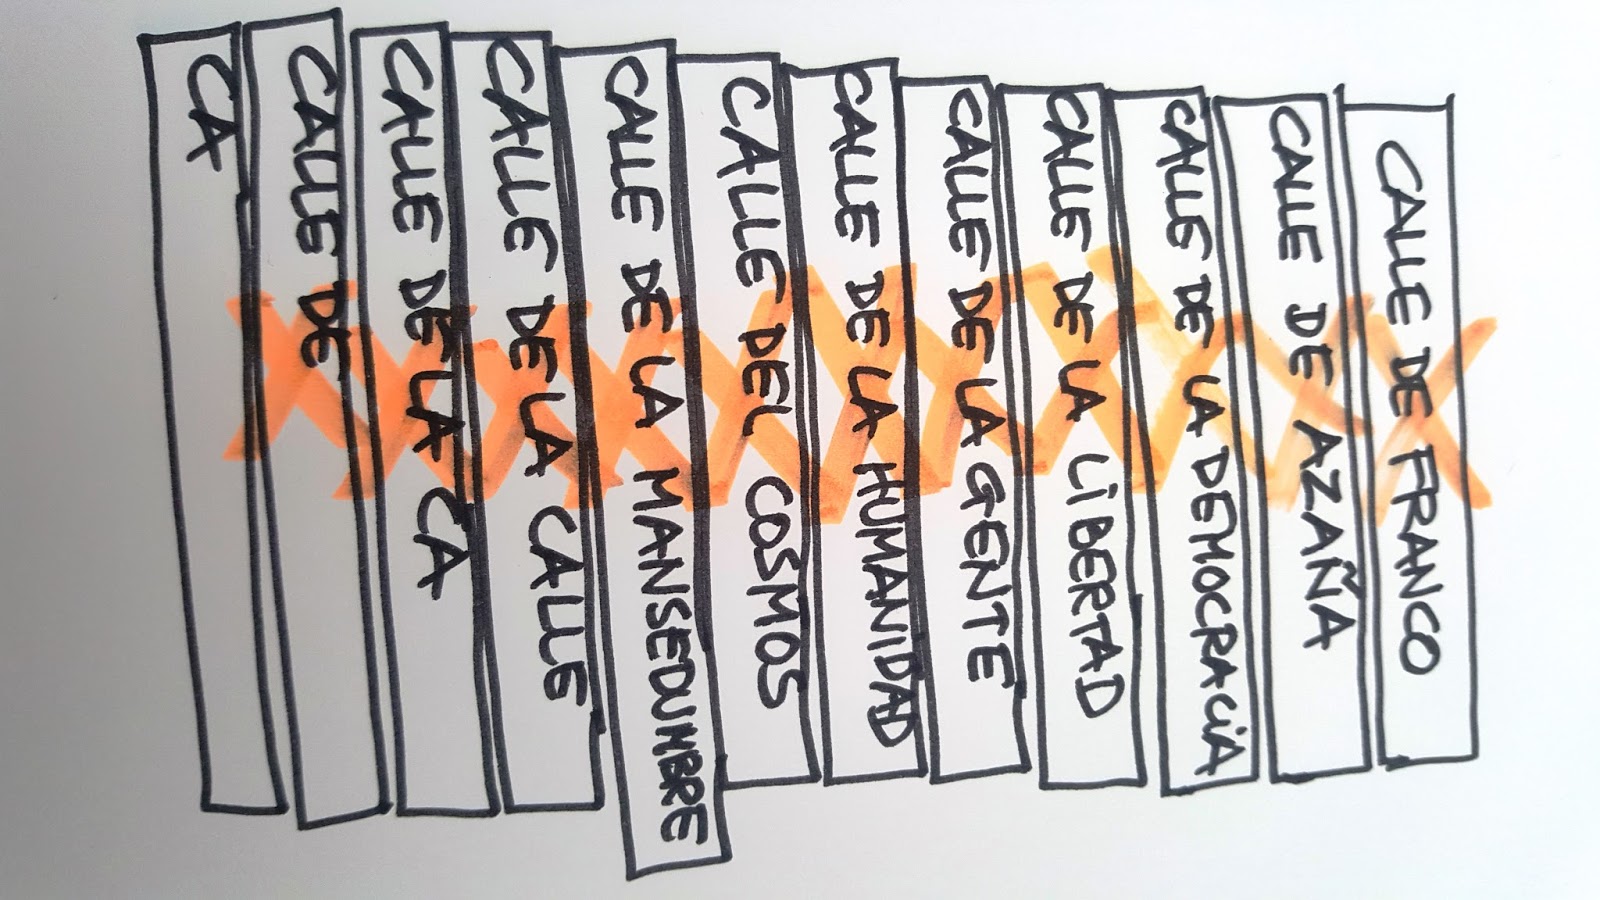 CALLE DE FRANCO
CALLE DE AZAÑA
CALLE DE LA DEMOCRACIA
CALLE DE LA LIBERTAD
CALLE DE LA GENTE
CALLE DE LA HUMANIDAD
CALLE DEL COSMOS
CALLE DE LA MANSEDUMBRE
CALLE DE LA CALLE
CALLE DE LA CA
CALLE DE
CA